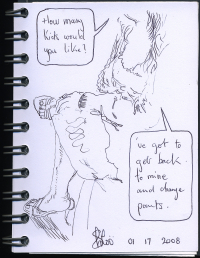 How many
kids would
you like?
've got to
get back
to mine
and change
pants.
01 17 2008